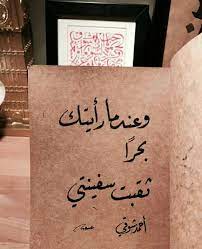 وعندما رأيتك
بحرًا
ثقبت سفينتي
أحمد شوقي